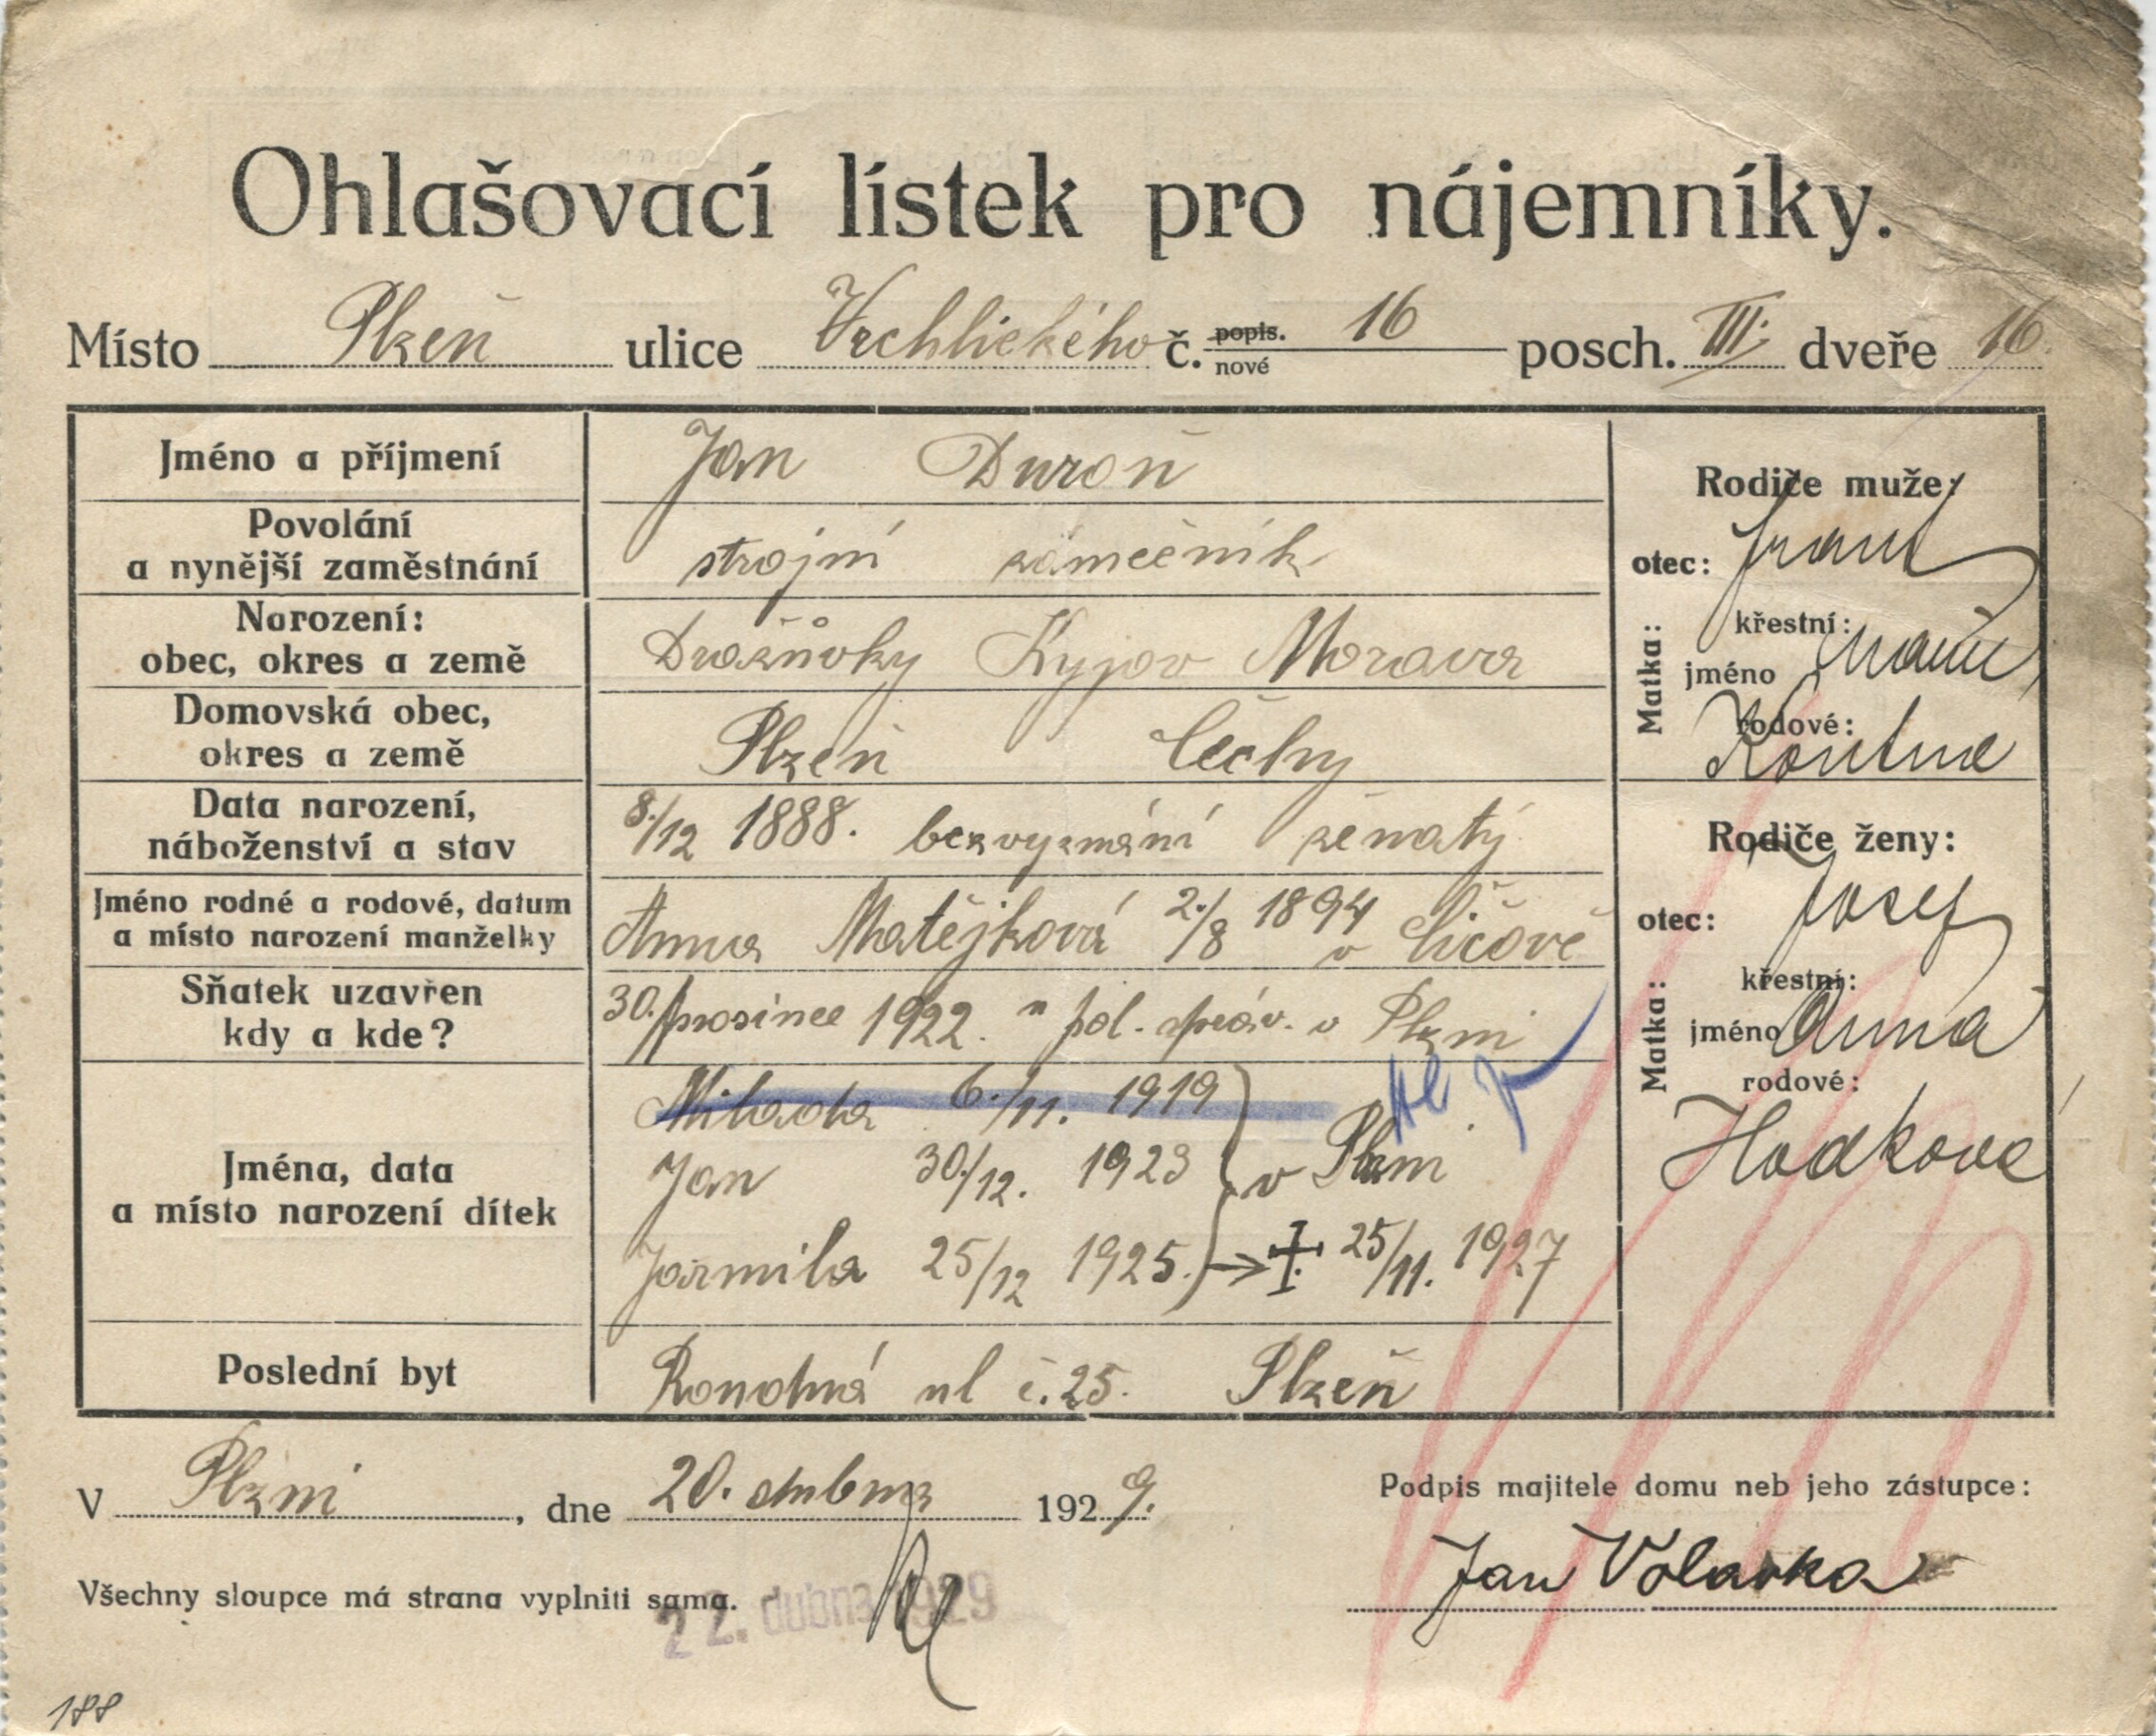 Ohlašovací lístek pro nájemníky.
Místo Plzeň ulice Vrchlického č. popis. nové 16 posch. III. dveře 16.
Jméno a příjmení Jan Duroň
Povolání
a nynější zaměstnání strojní zámečník
Narození:
obec, okres a země Kyjov Morava
Domovská obec,
okres a země Plzeň Čechy
Data narození,
náboženství a stav 8./12 1888. bezvyznání ženatý
Jméno rodné a rodové, datum
a místo narození manželky Anna Matějková 2./8 1894 v
Sňatek uzavřen
kdy a kde? 30. prosince 1922. pol. správ. v Plzni
Jména, data
a místo narození dítek
Milada 6./11. 1919
Jan 30/12. 1923 v Plzni
Jarmila 25/12 1925. → ‡ 25/11. 1927
Poslední byt ul č. 25. Plzeň
Rodiče muže:
otec:
Matka: křestní:
jméno
rodové:
Rodiče ženy:
otec: Josef
Matka: křestní:
jméno Anna
rodové:
Hodková
V Plzni, dne 20. dubna 1929.
Podpis majitele domu neb jeho zástupce:
Jan Volavka
Všechny sloupce má strana vyplniti sama.
22. dubna 1929
188